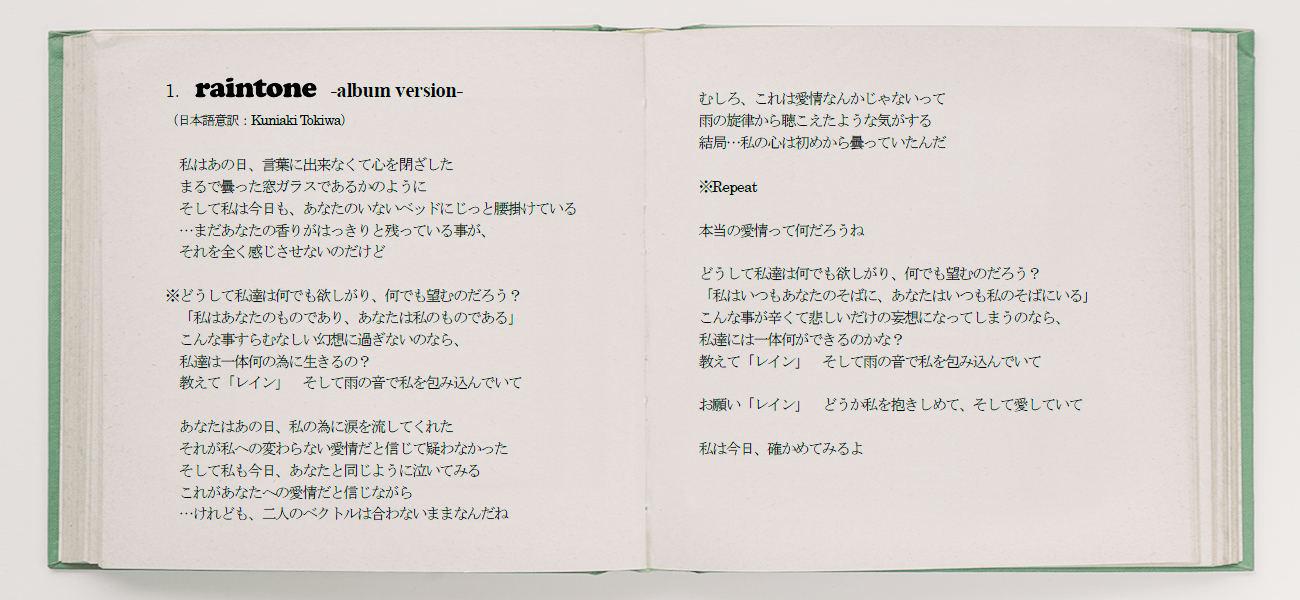 1. raintone -album version-
（日本語意訳：Kuniaki Tokiwa）
私はあの日、言葉に出来なくて心を閉ざした
まるで曇った窓ガラスであるかのように
そして私は今日も、あなたのいないベッドにじっと腰掛けている
…まだあなたの香りがはっきりと残っている事が、
それを全く感じさせないのだけど
※どうして私達は何でも欲しがり、何でも望むのだろう？
「私はあなたのものであり、あなたは私のものである」
こんな事すらむなしい幻想に過ぎないのなら、
私達は一体何の為に生きるの？
教えて「レイン」　そして雨の音で私を包み込んでいて
あなたはあの日、私の為に涙を流してくれた
それが私への変わらない愛情だと信じて疑わなかった
そして私も今日、あなたと同じように泣いてみる
これがあなたへの愛情だと信じながら
…けれども、二人のベクトルは合わないままなんだね
むしろ、これは愛情なんかじゃないって
雨の旋律から聴こえたような気がする
結局…私の心は初めから曇っていたんだ
※Repeat
本当の愛情って何だろうね
どうして私達は何でも欲しがり、何でも望むのだろう？
「私はいつもあなたのそばに、あなたはいつも私のそばにいる」
こんな事が辛くて悲しいだけの妄想になってしまうのなら、
私達には一体何ができるのかな？
教えて「レイン」　そして雨の音で私を包み込んでいて
お願い「レイン」　どうか私を抱きしめて、そして愛していて
私は今日、確かめてみるよ